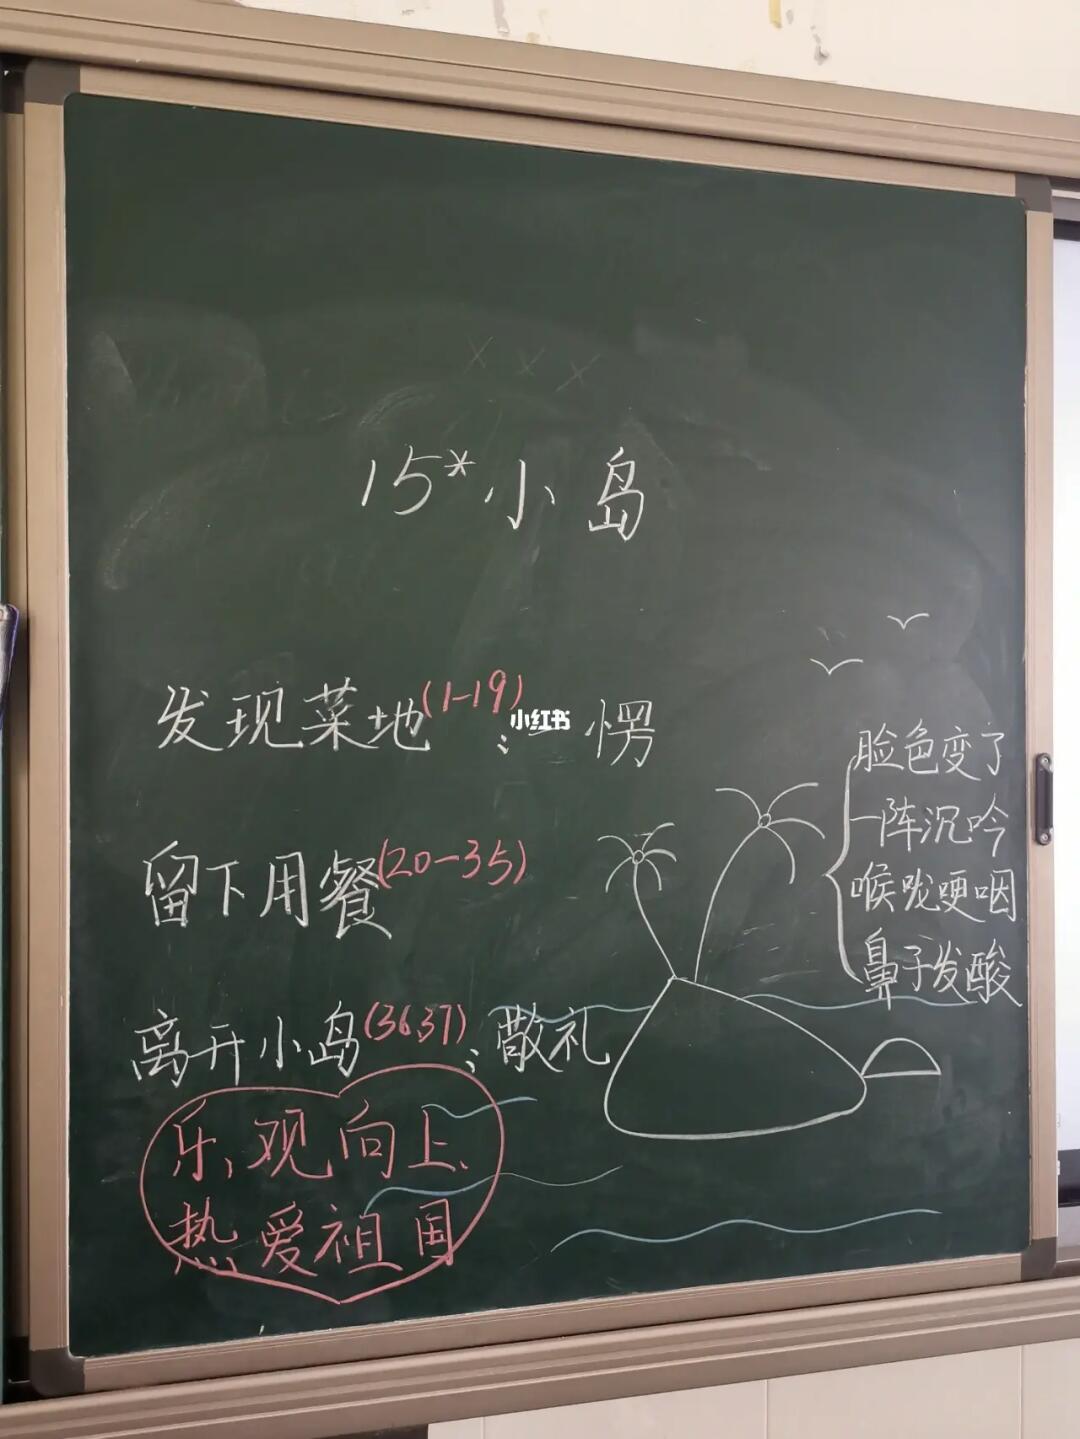 15*小岛
发现菜地(1-19):一愣
小红书
脸色变了
一阵沉吟
喉咙哽咽
鼻子发酸
留下用餐(20-35)
离开小岛(36,37):敬礼
乐观向上、
热爱祖国